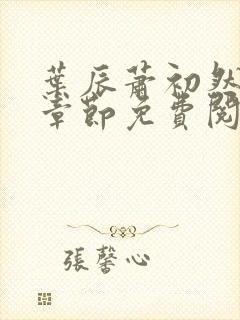 葉辰蕭初然
章節免費閱
張馨心